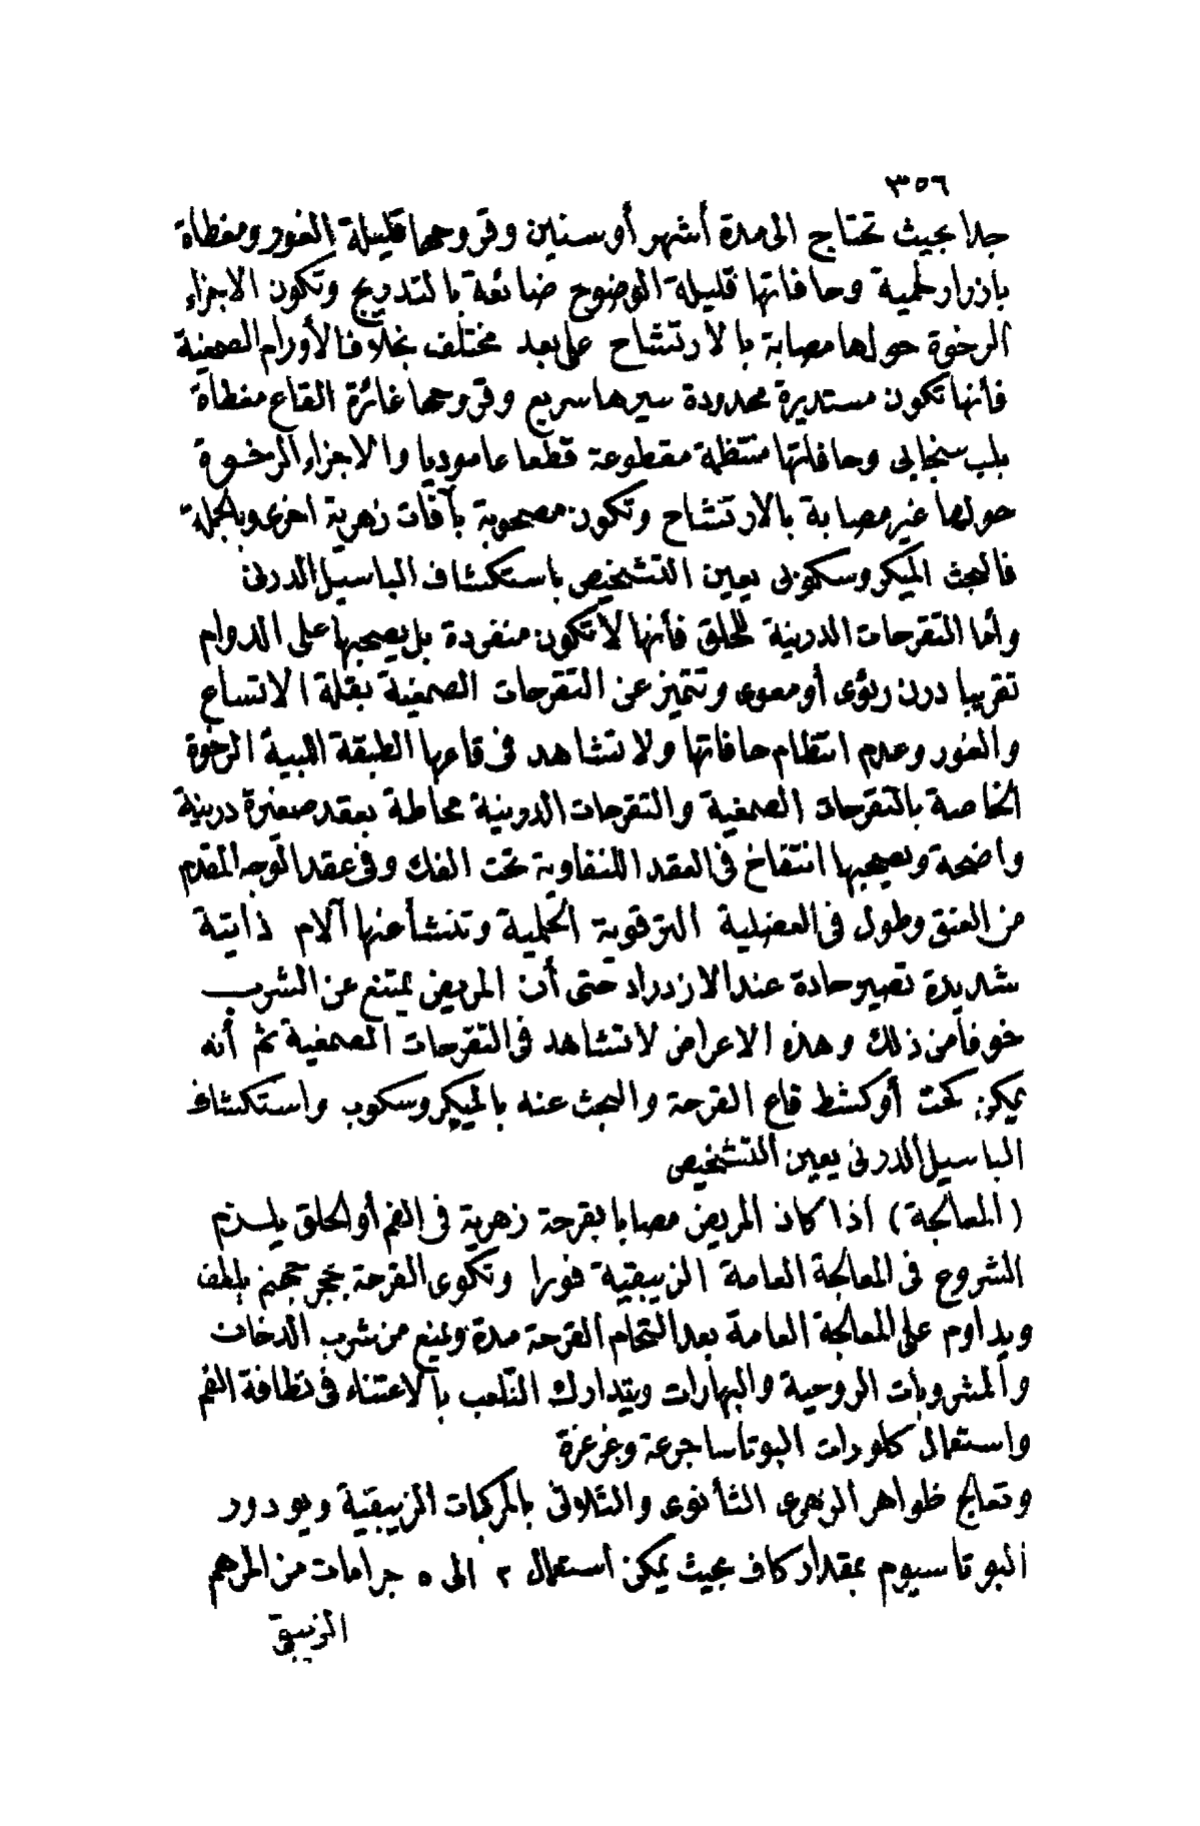 ٣٥٦
جدا بحيث تحتاج الى مدة أشهر أو سنين وقروحها قليلة الغور ومغطاة
بازرار لحمية وحافاتها قليلة الوضوح ضائعة بالتدريج وتكون الاجزاء
الرخوة حولها مصابة بالارتشاح على بعد مختلف بخلاف الأورام الصمغية
فأنها تكون مستديرة محدودة سيرها سريع وقروحها غائرة القاع مغطاة
بلب سنجابى وحافاتها منتظمة مقطوعة قطعا عاموديا والاجزاء الرخوة
حولها غير مصابة بالارتشاح وتكون مصحوبة بآفات زهرية اخرى وبالجملة
فالبحث الميكروسكوبى يعين التشخيص باستكشاف الباسيل الدرنى
وأما التقرحات الدرنية للحلق فأنها لا تكون منفردة بل يصحبها على الدوام
تقريبا درن رئوى أو معوى وتتميز عن التقرحات الصمغية بقلة الاتساع
والغور وعدم انتظام حافاتها ولا تشاهد فى قاعها الطبقة اللبية الرخوة
الخاصة بالتقرحات الصمغية والتقرحات الدرنية محاطة بعقد صغيرة درنية
واضحة ويصحبها انتفاخ فى العقد اللنفاوية تحت الفك وفى عقد الوجه المقدم
من العنق وطول فى العضلية الترقوية الحلمية وتنشأ عنها آلام ذاتية
شديدة تصير حادة عند الازدراد حتى أن المريض يمتنع عن الشرب
خوفا من ذلك وهذه الاعراض لا تشاهد فى التقرحات الصمغية ثم أنه
يمكن كحت أو كشط قاع القرحة والبحث عنه بالميكروسكوب واستكشاف
الباسيل الدرنى يعين التشخيص
(المعالجة) اذا كان المريض مصابا بقرحة زهرية فى الفم أو الحلق يلزم
الشروع فى المعالجة العامة الزيبقية فورا وتكوى القرحة بحجر جهنم بلطف
ويداوم على المعالجة العامة بعد التحام القرحة مدة ويمنع من شرب الدخان
والمشروبات الروحية والبهارات ويتدارك التلعب بالاعتناء فى نظافة الفم
واستعمال كلورات البوتاسا جرعة وغرغرة
وتعالج ظواهر الزهرى الثانوى والثلاثى بالمركبات الزيبقية ويودور
البوتاسيوم بمقدار كاف بحيث يمكن استعمال ٢ الى ٥ جرامات من المرهم
الزيبقى